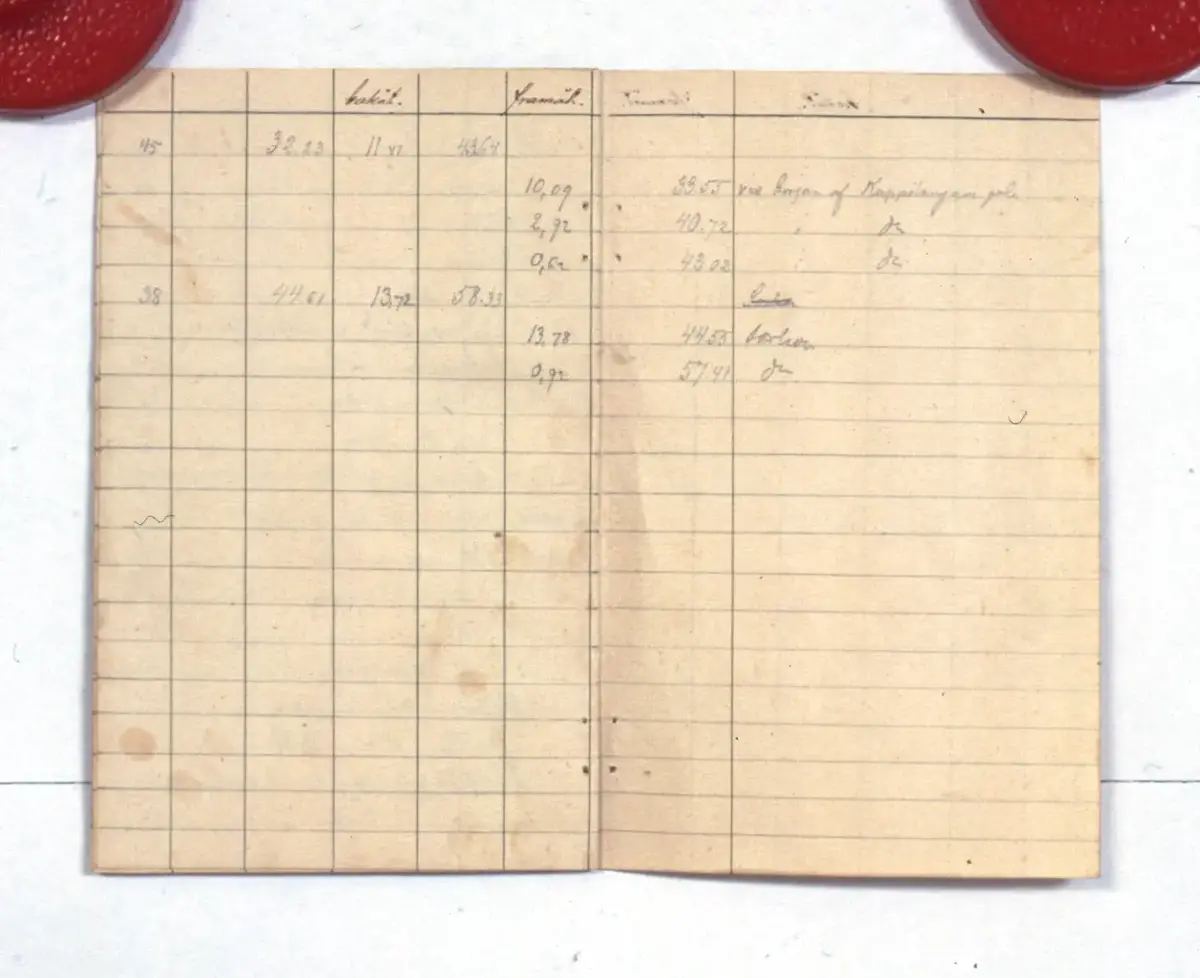 bakåt. framåt.
45 32.23 11.41 43.64
10,09 33.55 af
2,92 40.72 " do
0,62 43.02 " do
38 44.61 13,72 58.33
13,78 44.55
0,92 57.41 do